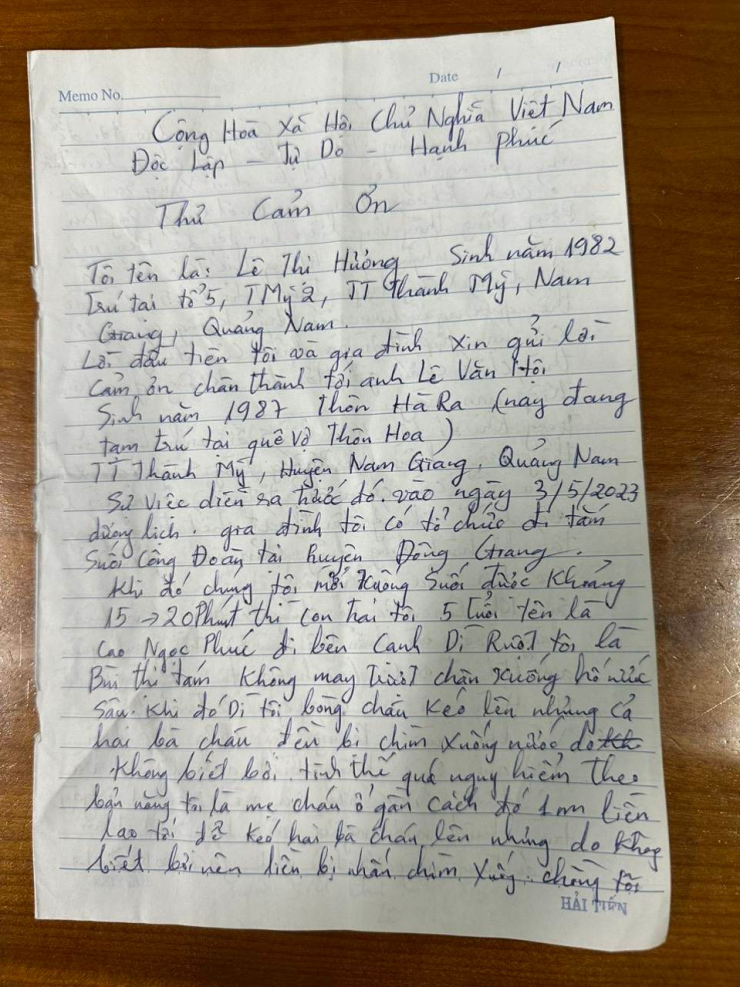 Memo No.
Date / /
Cộng Hoà Xã Hội Chủ Nghĩa Việt Nam
Độc Lập - Tự Do - Hạnh Phúc
Thư Cảm Ơn
Tôi tên là: Lê Thị Hường Sinh năm 1982
Trú tại tổ 5, TMỹ 2, TT Thành Mỹ, Nam
Giang, Quảng Nam.
Lời đầu tiên tôi và gia đình xin gửi lời
Cảm ơn chân thành tới anh Lê Văn Hội
Sinh năm 1987 Thôn Hà Ra (nay đang
tạm trú tại quê vợ Thôn Hoa)
TT Thành Mỹ, Huyện Nam Giang. Quảng Nam
Sự việc diễn ra trước đó. vào ngày 3/5/2023
dương lịch. gia đình tôi có tổ chức đi tắm
Suối Công Đoàn tại huyện Đông Giang.
Khi đó chúng tôi mới xuống Suối được Khoảng
15 → 20 Phút thì con trai tôi 5 tuổi tên là
Cao Ngọc Phúc đi bên Cạnh Dì Ruột tôi là
Bùi thị tám không may trượt chân xuống hố nước
Sâu. Khi đó Dì tôi bồng cháu kéo lên nhưng cả
hai bà cháu đều bị chìm xuống nước do
Không biết bơi. tình thế quá nguy hiểm theo
bản năng tôi là mẹ cháu ở gần cách đó 1m liền
lao tới để kéo hai bà cháu lên nhưng do không
biết bơi nên liền bị nhấn chìm xuống. chồng tôi
HẢI TIẾN